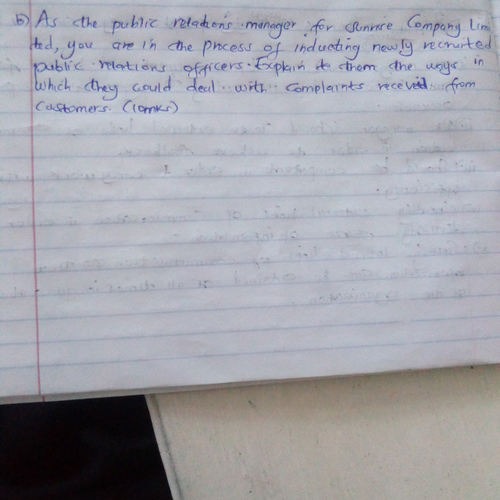 b) As the public relations manager for Sunrise Company Lim
ted, you are in the process of inducting newly recruited
public relations officers. Explain to them the ways in
which they could deal with complaints received from
customers. (10mks)